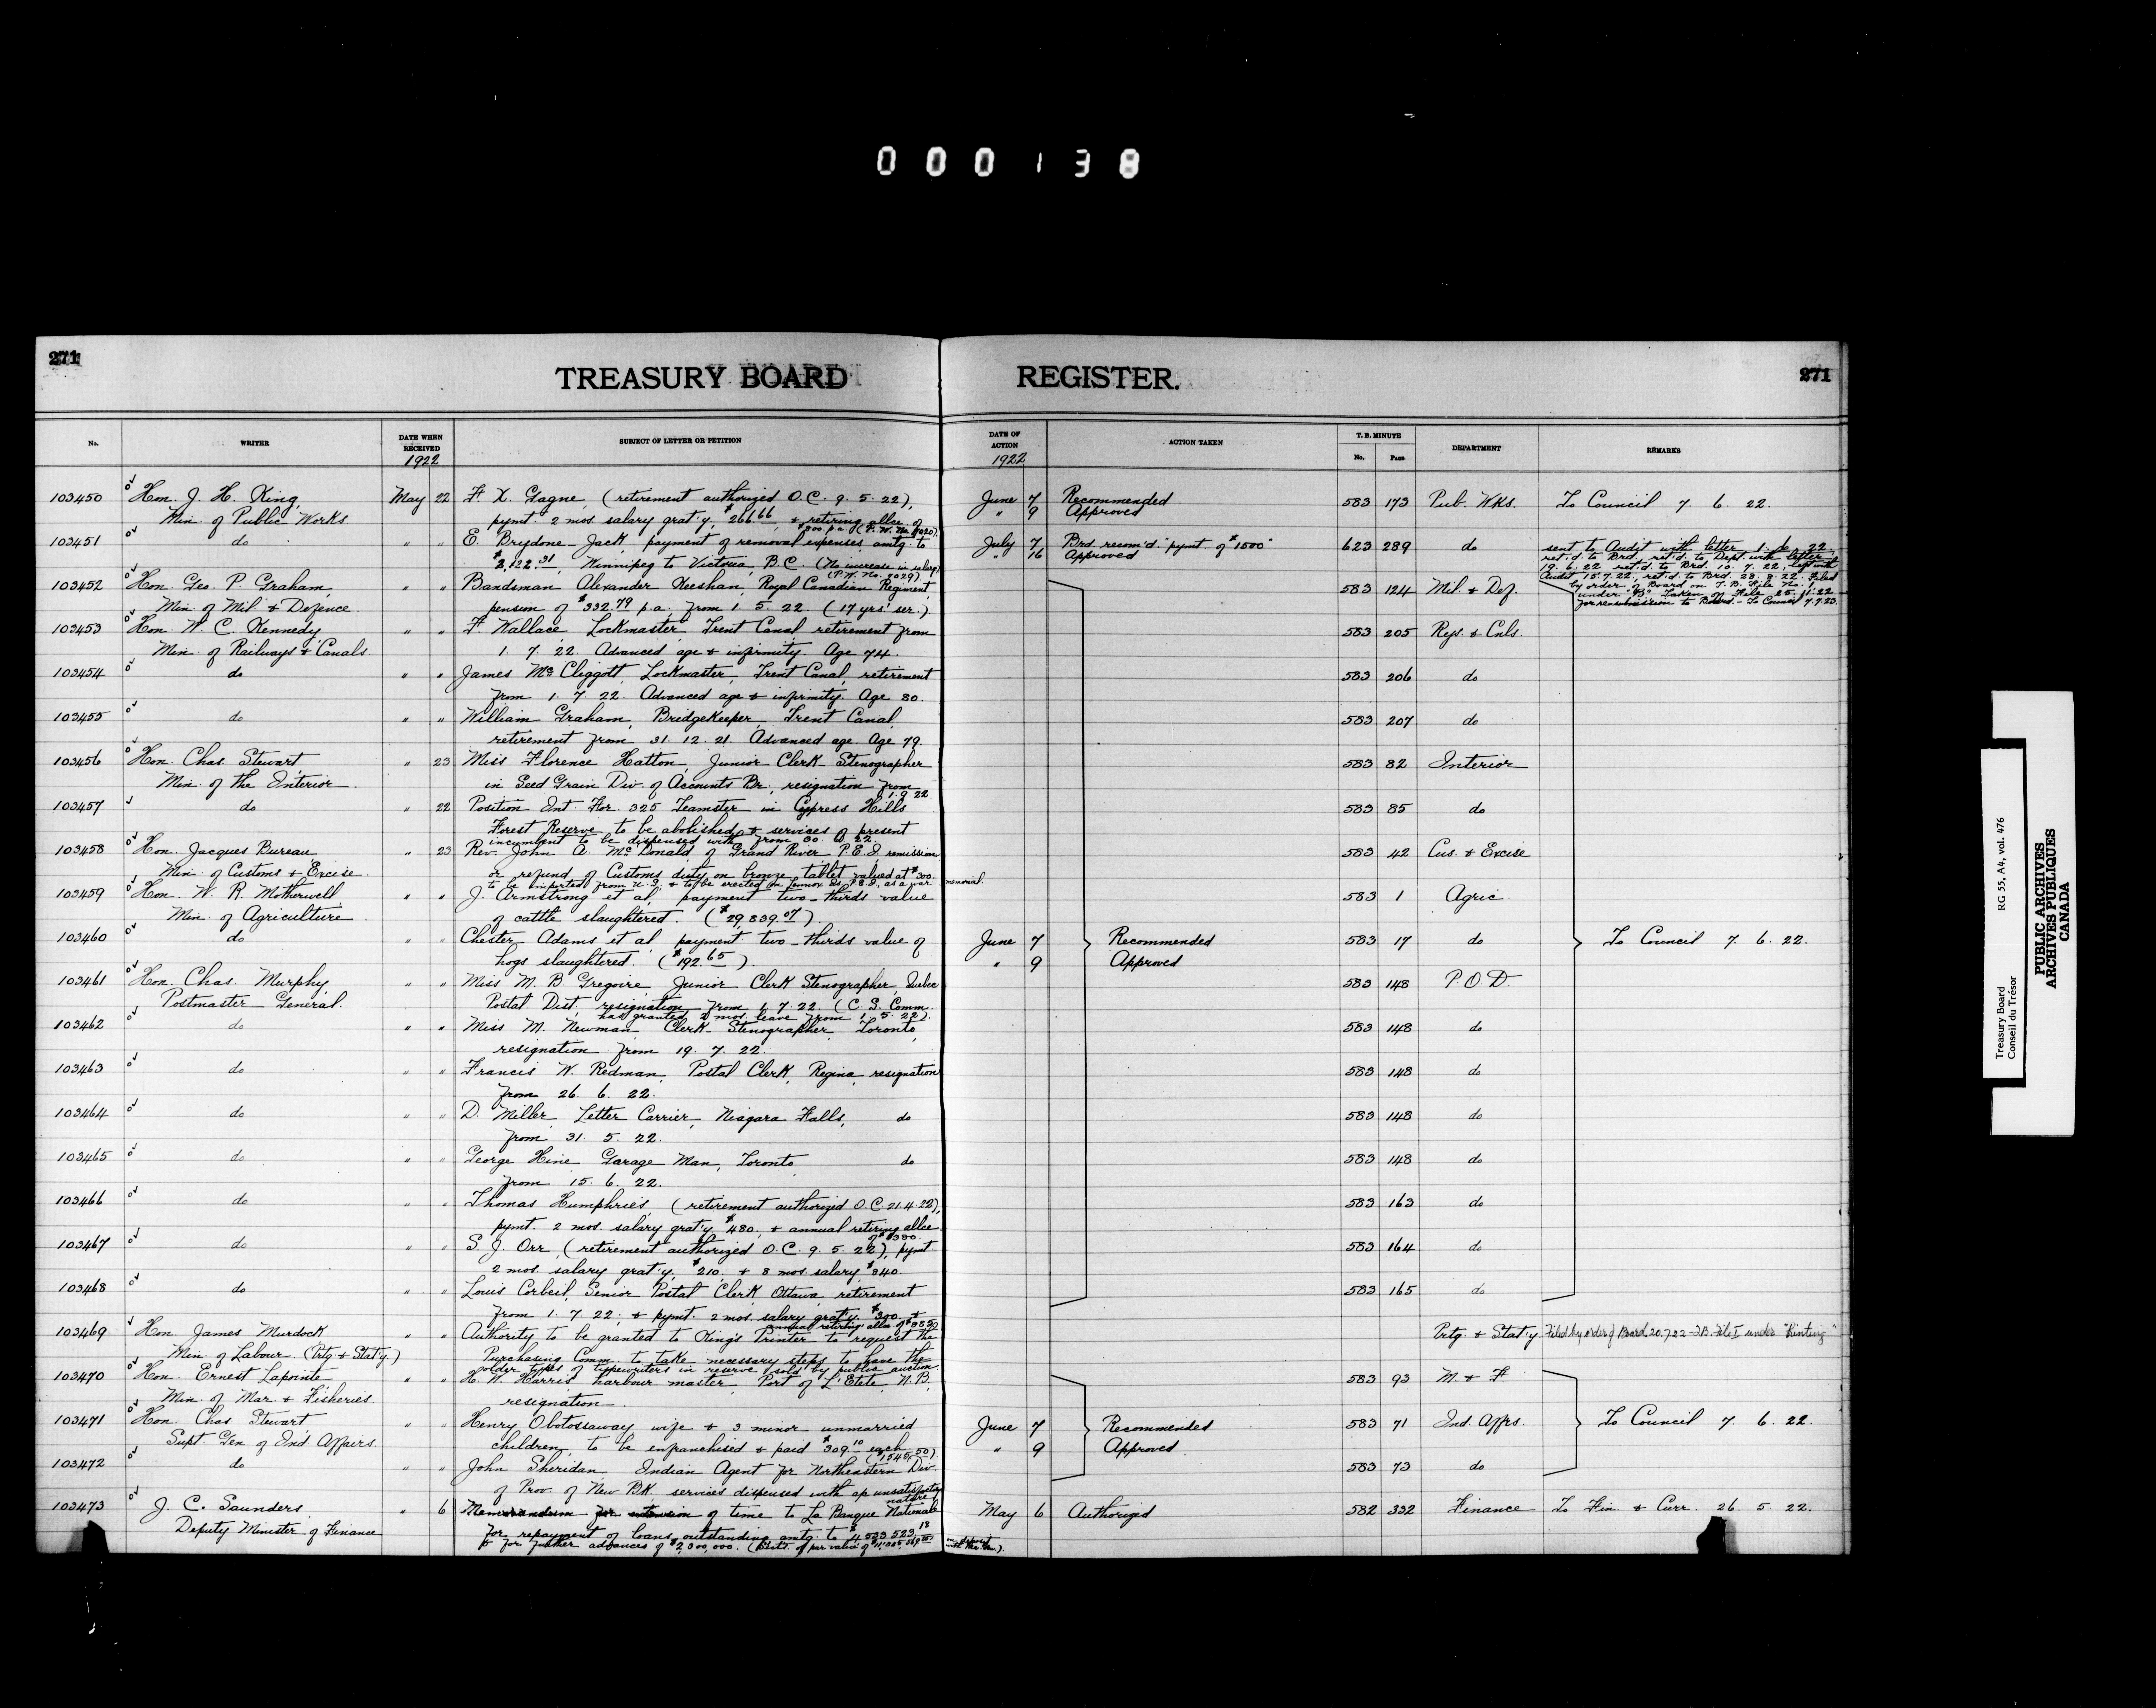 000138
271
TREASURY BOARD REGISTER.
271
No. WRITER DATE WHEN RECEIVED SUBJECT OF LETTER OR PETITION DATE OF ACTION ACTION TAKEN T. B. MINUTE No. Page DEPARTMENT REMARKS
1922 1922
103450 Hon. J. H. King, May 22 F. X. Gagne, (retirement authorized O.C. 9. 5. 22), June 7 Recommended 583 173 Pub. Wks. To Council 7. 6. 22.
Min. of Public Works pymt. 2 mos. salary grat'y, $266.66, & retiring allce of " 9 Approved
$800. p.a. (P. W. No.
103451 do " " E. Brydone-Jack, payment of removal expenses amtg. to July 7 Brd. recom'd. "pymt. of $1500" 623 289 do sent to Audit with letter 1. 6. 22
$2,122.31, Winnipeg to Victoria, B.C. (No increase in salary) " 16 Approved ret'd. to Brd., ret'd. to Dept. with letter
(P.W. No. 2029). 19. 6. 22 ret'd. to Brd. 10. 7. 22, left with
103452 Hon. Geo. P. Graham, " " Bandsman Alexander Neeshan, Royal Canadian Regiment, 583 124 Mil. & Def. Audit 15. 7. 22, ret'd. to Brd. 28. 8. 22. Filed
by order of Board on T. B. File No. 1
Min. of Mil. & Defence pension of $332.79 p.a. from 1. 5. 22. (17 yrs' ser.). under "B" Taken off File 25. 11. 22
for resubmission to Board.- To Council 7. 7. 23.
103453 Hon. W. C. Kennedy, " " F. Wallace, Lockmaster, Trent Canal, retirement from 583 205 Rys. & Cnls.
Min. of Railways & Canals 1. 7. 22. Advanced age & infirmity. Age 74.
103454 do " " James McCliggott, Lockmaster, Trent Canal, retirement 583 206 do
from 1. 7. 22. Advanced age & infirmity. Age 80.
103455 do " " William Graham, Bridgekeeper, Trent Canal, 583 207 do
retirement from 31. 12. 21. Advanced age. Age 79.
103456 Hon. Chas. Stewart " 23 Miss Florence Hatton, Junior Clerk Stenographer 583 82 Interior
Min. of the Interior. in Seed Grain Div. of Accounts Br., resignation from
1. 9. 22
103457 do " 22 Position Int. For. 325 Teamster in Cypress Hills 583 85 do
Forest Reserve to be abolished & services of present
incumbent to be dispensed with from 30. 6. 22
103458 Hon. Jacques Bureau " 23 Rev. John A. McDonald of Grand River P.E.I. remission 583 42 Cus. & Excise
Min. of Customs & Excise. or refund of Customs duty on bronze tablet valued at $300.
to be imported from U.S. & to be erected in Lennox Is., P.E.I., as a war memorial.
103459 Hon. W. R. Motherwell " " J. Armstrong et al, payment two-thirds value 583 1 Agric.
Min. of Agriculture of cattle slaughtered. ($29,839.07).
103460 do " " Chester Adams et al, payment two-thirds value of June 7 Recommended 583 17 do To Council 7. 6. 22.
hogs slaughtered. ($192.65). " 9 Approved
103461 Hon. Chas. Murphy, " " Miss M. B. Gregoire, Junior Clerk Stenographer, Quebec 583 148 P.O.D.
Postmaster General. Postal Dist., resignation from 1. 7. 22. (C. S. Comm.
has granted 2 mos. leave from 1. 5. 22).
103462 do " " Miss M. Newman Clerk Stenographer, Toronto, 583 148 do
resignation from 19. 7. 22.
103463 do " " Francis W. Redman, Postal Clerk, Regina, resignation 583 148 do
from 26. 6. 22.
103464 do " " D. Miller, Letter Carrier, Niagara Falls, do 583 148 do
from 31. 5. 22.
103465 do " " George Hine, Garage Man, Toronto, do 583 148 do
from 15. 6. 22.
103466 do " " Thomas Humphries, (retirement authorized O.C. 21.4.22), 583 163 do
pymt. 2 mos. salary grat'y $480, & annual retiring allce.
of $380.
103467 do " " S. J. Orr, (retirement authorized O.C. 9. 5. 22), pymt 583 164 do
2 mos. salary grat'y, $210. & 8 mos. salary $840.
103468 do " " Louis Corbeil, Senior Postal Clerk, Ottawa, retirement 583 165 do
from 1. 7. 22; & pymt. 2 mos. salary grat'y, $300 &
annual retiring allce of
103469 Hon. James Murdock " " Authority to be granted to King's Printer to request the Prtg. & Stat'y Filed by order of Board 20.7.22 - T.B. File I under "Printing"
Min. of Labour (Prtg. & Stat'y.) Purchasing Comm. to take necessary steps to have the
older types of typewriters in reserve sold by public auction.
103470 Hon. Ernest Lapointe " " H. W. Harris harbour master, Port of L'Etete, N.B., 583 93 M. & F.
Min. of Mar. & Fisheries. resignation.
103471 Hon. Chas. Stewart " " Henry Obotossaway wife & 3 minor unmarried June 7 Recommended 583 71 Ind. Affrs. To Council 7. 6. 22.
Supt. Gen. of Ind. Affairs. children, to be enfranchised & paid $309.10 each " 9 Approved.
($1545.50)
103472 do " " John Sheridan Indian Agent for Northeastern Div. 583 73 do
of Prov. of New Bk. services dispensed with ap. unsatisfactory
nature
103473 J. C. Saunders, " 6 Memorandum for extension of time to La Banque Nationale May 6 Authorized 582 332 Finance To Fin. & Curr. 26. 5. 22.
Deputy Minister of Finance for repayment of loans outstanding amtg. to $4,523,523.18
& for further advances of $2,300,000. of par value of on deposit
Treasury Board
Conseil du Trésor
RG 55, A4, vol. 476
PUBLIC ARCHIVES
ARCHIVES PUBLIQUES
CANADA